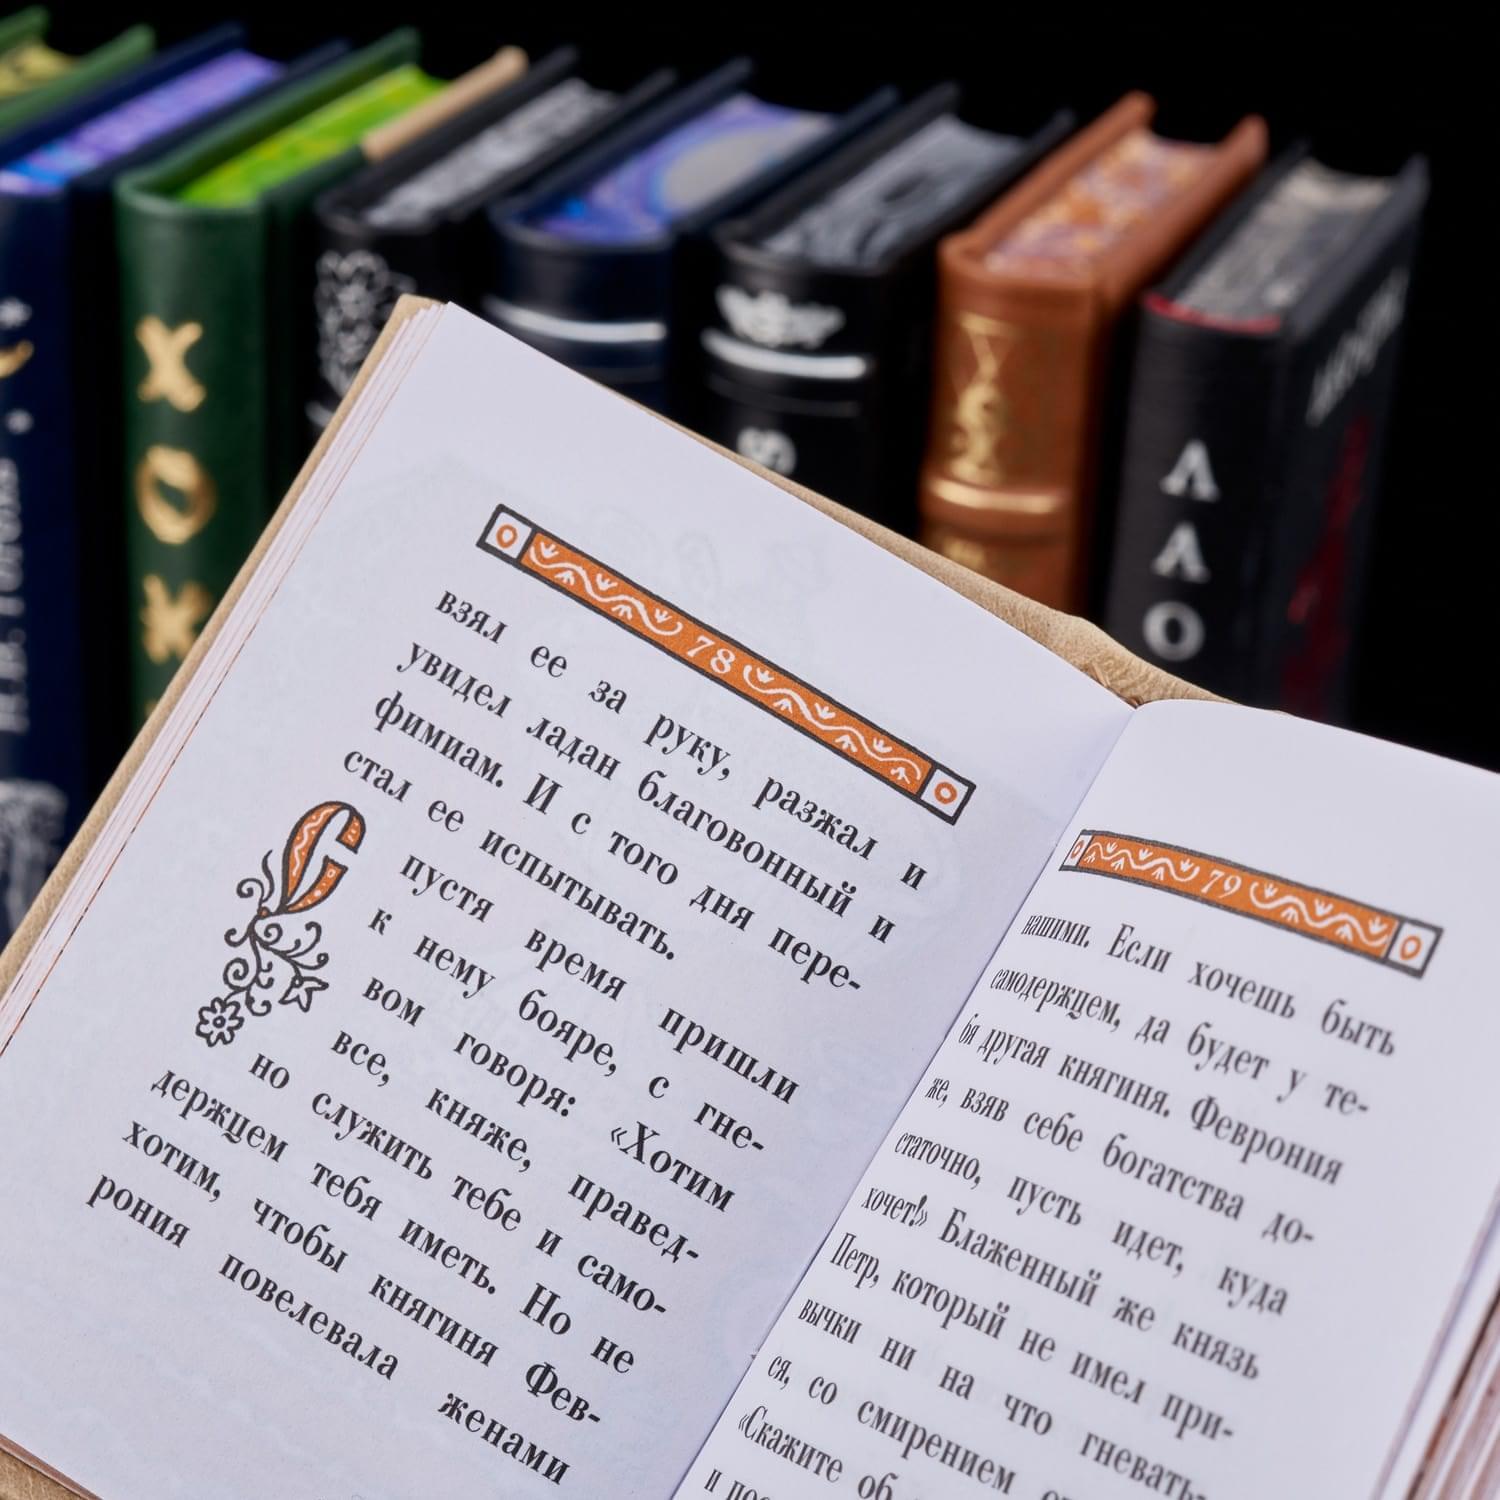 ХОХ
ЛАО
78
взял ее за руку, разжал и
увидел ладан благовонный и
фимиам. И с того дня пере-
стал ее испытывать.
Спустя время пришли
к нему бояре, с гне-
вом говоря: «Хотим
все, княже, правед-
но служить тебе и само-
держцем тебя иметь. Но не
хотим, чтобы княгиня Фев-
рония повелевала женами
79
нашими. Если хочешь быть
самодержцем, да будет у те-
бя другая княгиня. Феврония
же, взяв себе богатства до-
статочно, пусть идет, куда
хочет!» Блаженный же князь
Петр, который не имел при-
вычки ни на что гневать-
ся, со смирением
«Скажите об
и